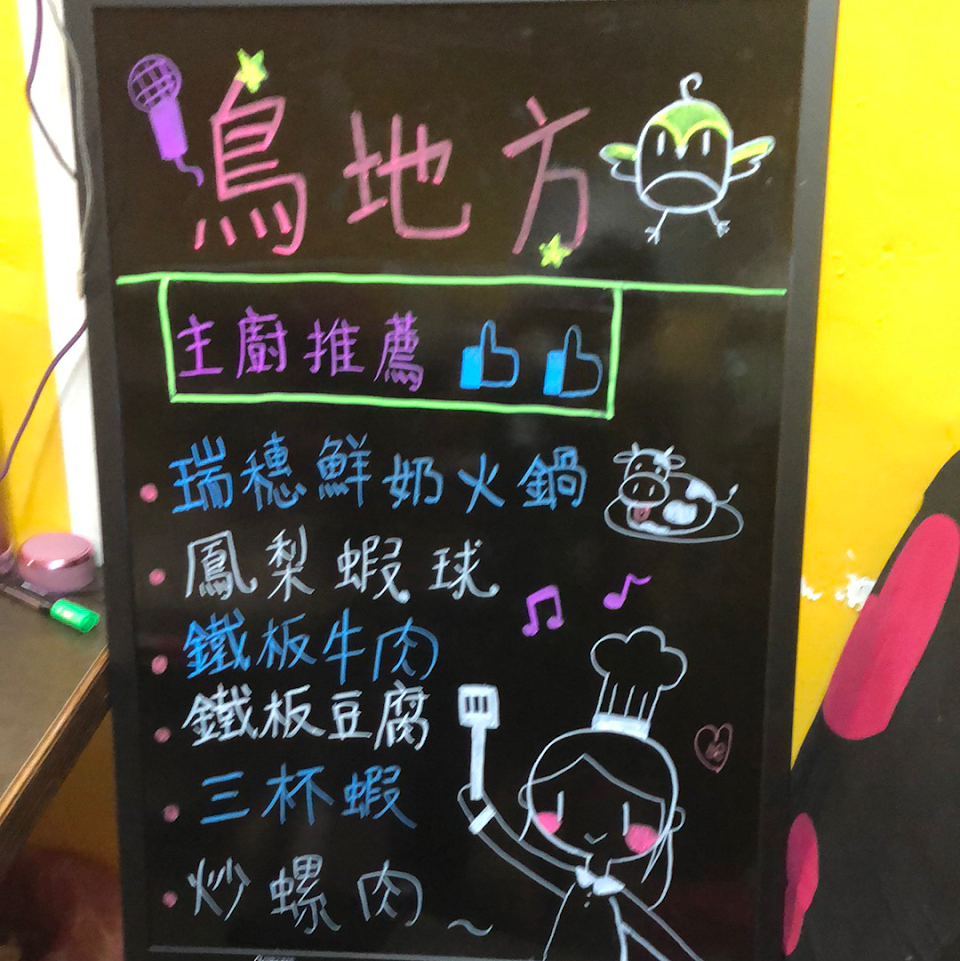 鳥地方
主廚推薦
瑞穗鮮奶火鍋
鳳梨蝦球
鐵板牛肉
鐵板豆腐
三杯蝦
炒螺肉~